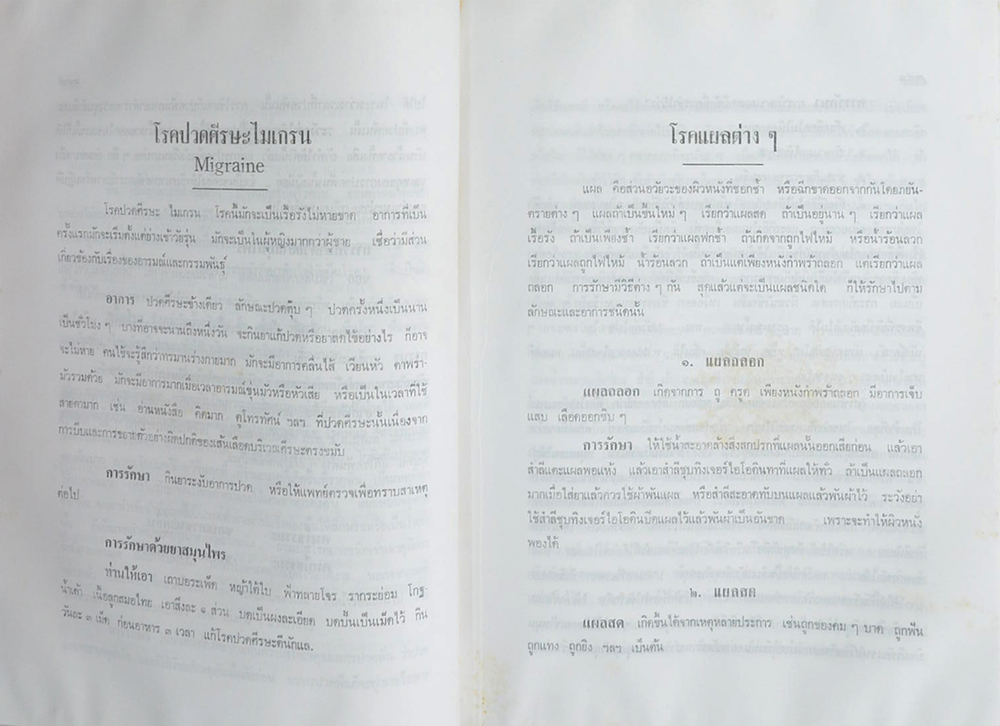 โรคปวดศีรษะไมเกรน
Migraine
โรคปวดศีรษะ ไมเกรน โรคนี้มักจะเป็นเรื้อรังไม่หายขาด อาการที่เป็น
ครั้งแรกมักจะเริ่มตั้งแต่ย่างเข้าวัยรุ่น มักจะเป็นในผู้หญิงมากกว่าผู้ชาย เชื่อว่ามีส่วน
เกี่ยวข้องกับเรื่องของอารมณ์และกรรมพันธุ์
อาการ ปวดศีรษะข้างเดียว ลักษณะปวดตุ๊บ ๆ ปวดครั้งหนึ่งเป็นนาน
เป็นชั่วโมง ๆ บางทีอาจจะนานถึงหนึ่งวัน จะกินยาแก้ปวดหรือยาลดไข้อย่างไร ก็อาจ
จะไม่หาย คนไข้จะรู้สึกว่าทรมานร่างกายมาก มักจะมีอาการคลื่นไส้ เวียนหัว ตาพร่า-
มัวรวมด้วย มักจะมีอาการมากเมื่อเวลาอารมณ์ขุ่นมัวหรือหัวเสีย หรือเป็นในเวลาที่ใช้
สายตามาก เช่น อ่านหนังสือ คิดมาก ดูโทรทัศน์ ฯลฯ ที่ปวดศีรษะนั้นเนื่องจาก
การบีบและการขยายตัวอย่างผิดปกติของเส้นเลือดบริเวณศีรษะตรงขมับ
การรักษา กินยาระงับอาการปวด หรือให้แพทย์ตรวจเพื่อทราบสาเหตุ
ต่อไป
การรักษาด้วยยาสมุนไพร
ท่านให้เอา เถาบอระเพ็ด หญ้าใต้ใบ ฟ้าทลายโจร รากระย่อม โกฐ-
น้ำเต้า เนื้อลูกสมอไทย เอาสิ่งละ ๑ ส่วน บดเป็นผงละเอียด บดปั้นเป็นเม็ดไว้ กิน
วันละ ๓ เม็ด ก่อนอาหาร ๓ เวลา แก้โรคปวดศีรษะดีนักแล.
โรคแผลต่าง ๆ
แผล คือส่วนอวัยวะของผิวหนังที่ชอกช้ำ หรือฉีกขาดออกจากกันโดยภยัน-
ตรายต่าง ๆ แผลถ้าเป็นขึ้นใหม่ ๆ เรียกว่าแผลสด ถ้าเป็นอยู่นาน ๆ เรียกว่าแผล
เรื้อรัง ถ้าเป็นเพียงช้ำ เรียกว่าแผลฟกช้ำ ถ้าเกิดจากถูกไฟไหม้ หรือน้ำร้อนลวก
เรียกว่าแผลถูกไฟไหม้ น้ำร้อนลวก ถ้าเป็นแต่เพียงหนังกำพร้าถลอก แต่เรียกว่าแผล
ถลอก การรักษามีวิธีต่าง ๆ กัน สุดแล้วแต่จะเป็นแผลชนิดใด ก็ให้รักษาไปตาม
ลักษณะและอาการชนิดนั้น
๑. แผลถลอก
แผลถลอก เกิดจากการ ถู ครูด เพียงหนังกำพร้าถลอก มีอาการเจ็บ
แสบ เลือดออกซิบ ๆ
การรักษา ให้ใช้น้ำสะอาดล้างสิ่งสกปรกที่แผลนั้นออกเสียก่อน แล้วเอา
สำลีแตะแผลพอแห้ง แล้วเอาสำลีชุบทิงเจอร์ไอโอดินทาที่แผลให้ทั่ว ถ้าเป็นแผลถลอก
มากเมื่อใส่ยาแล้วควรใช้ผ้าพันแผล หรือสำลีสะอาดทับบนแผลแล้วพันผ้าไว้ ระวังอย่า
ใช้สำลีชุบทิงเจอร์ไอโอดินปิดแผลไว้แล้วพันผ้าเป็นอันขาด เพราะจะทำให้ผิวหนัง
พองได้
๒. แผลสด
แผลสด เกิดขึ้นได้จากเหตุหลายประการ เช่นถูกของคม ๆ บาด ถูกฟัน
ถูกแทง ถูกยิง ฯลฯ เป็นต้น